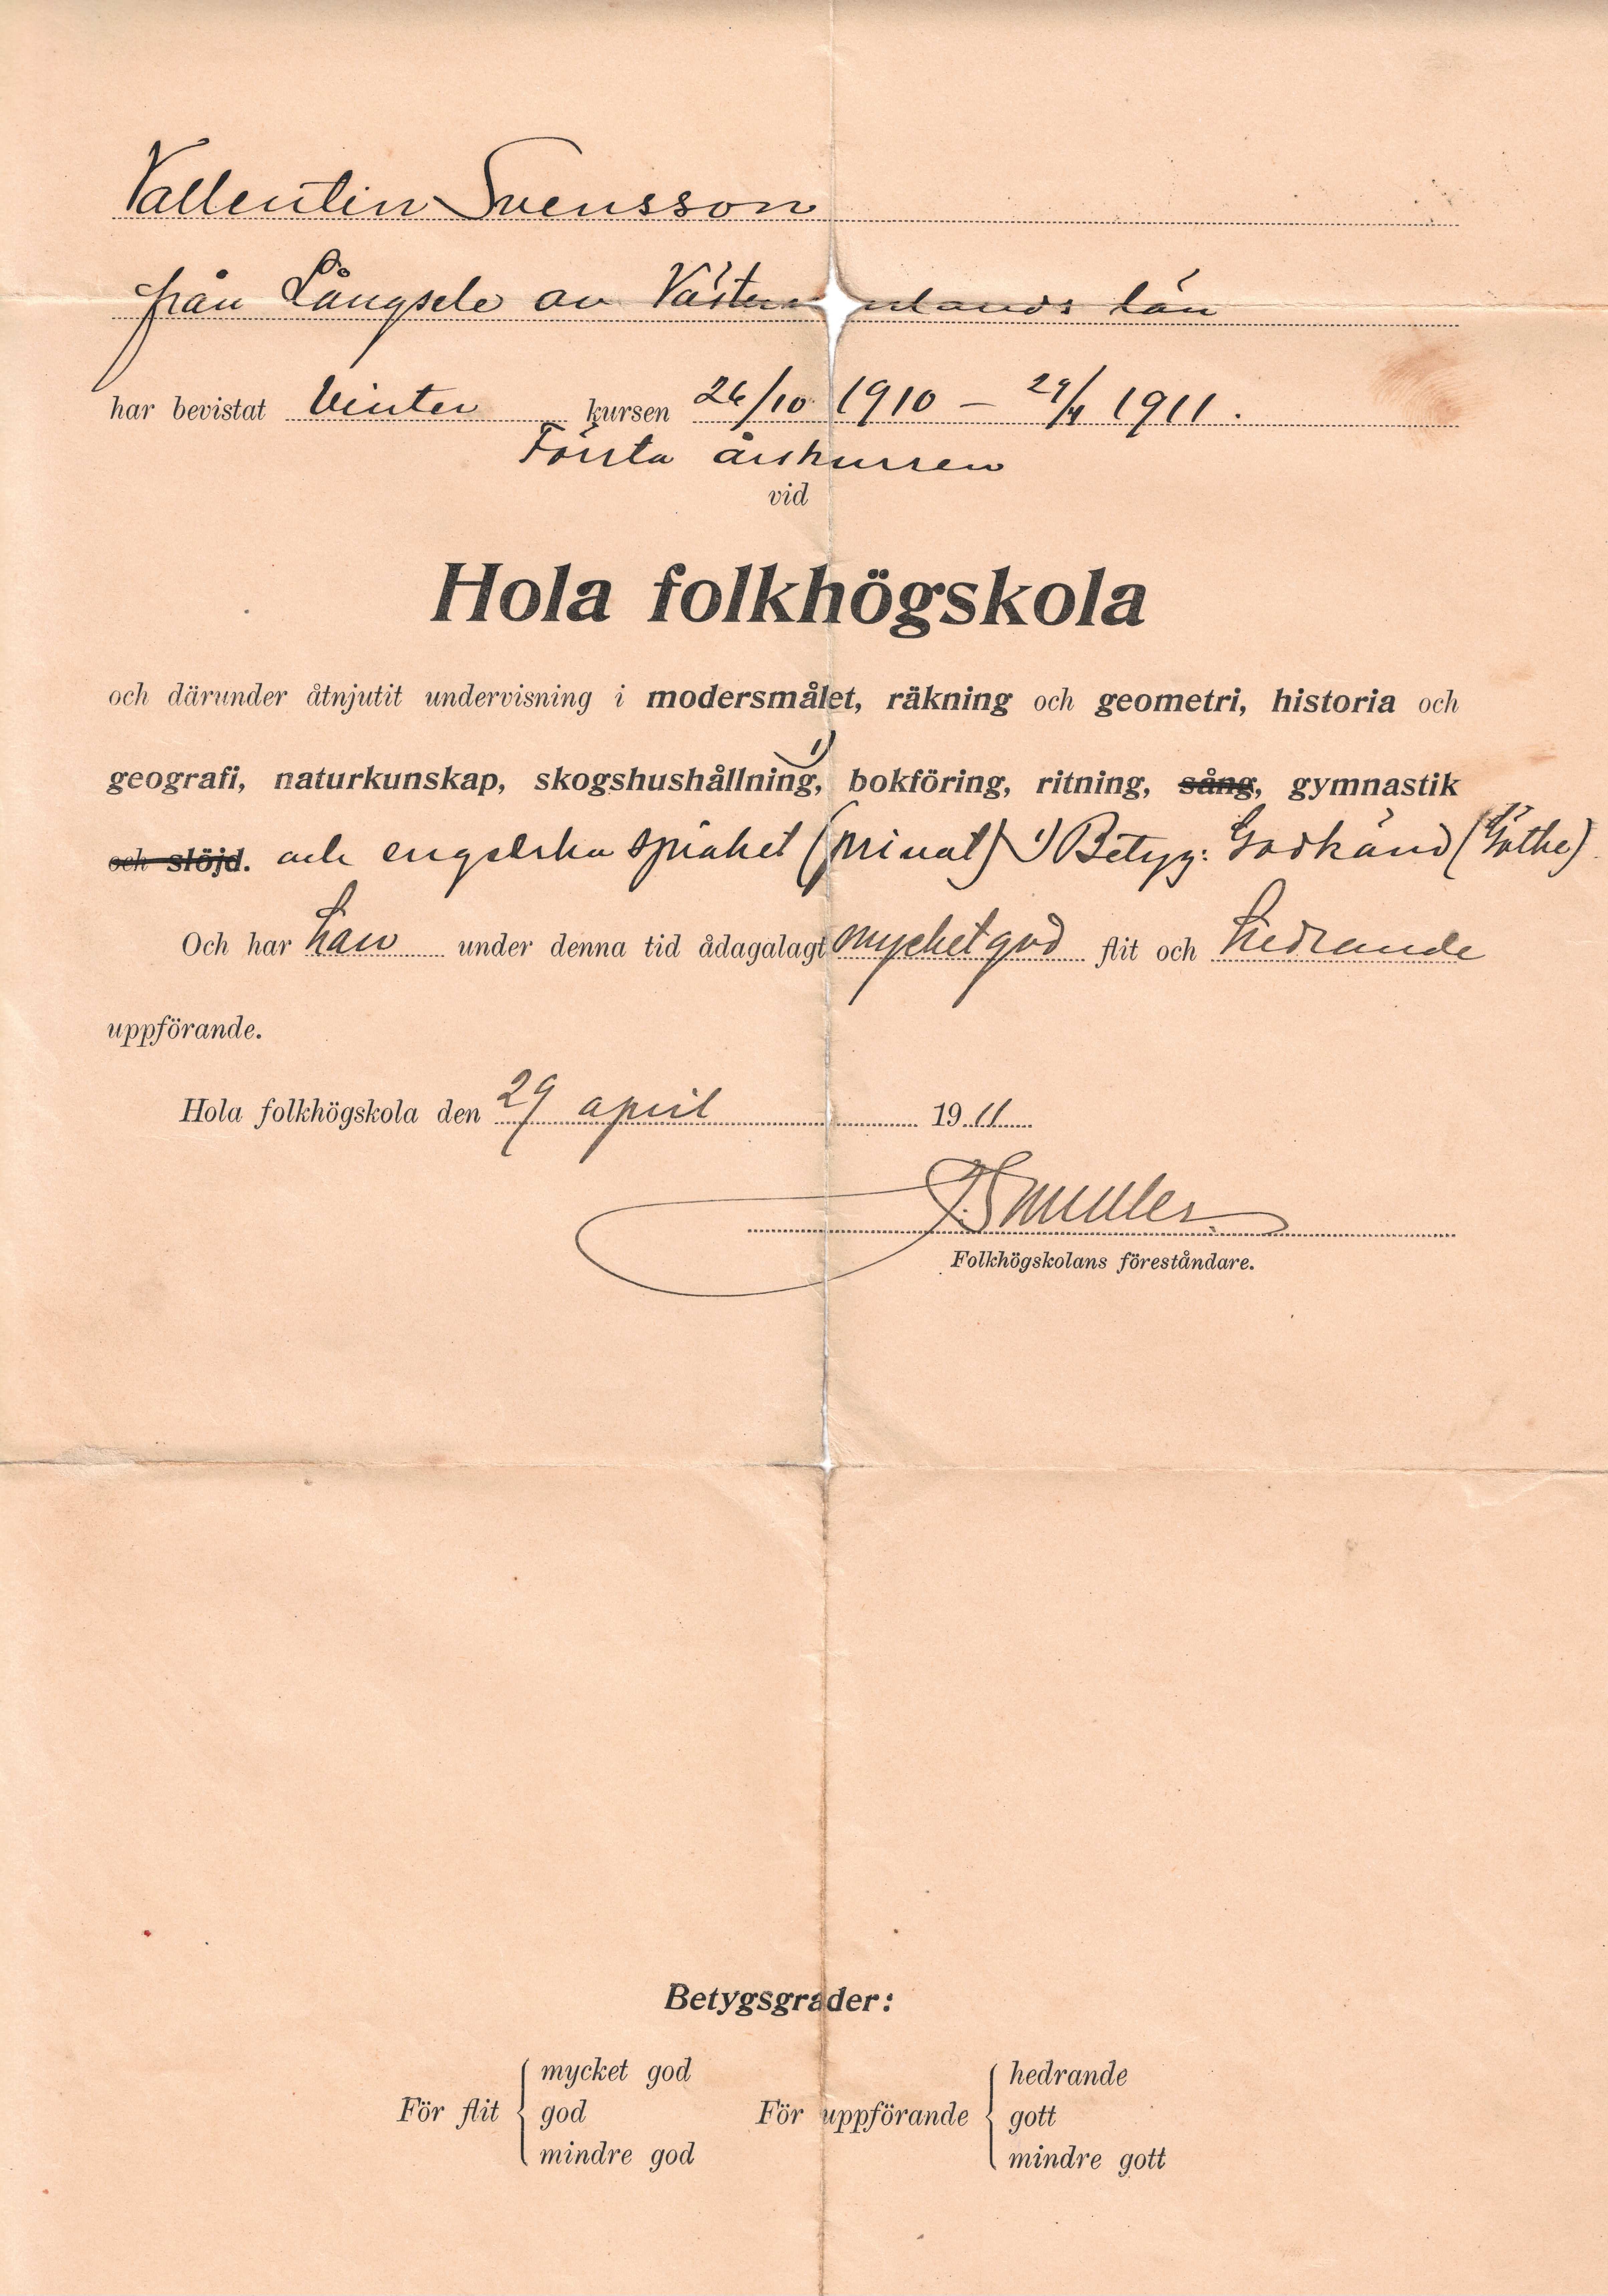 Vallentin Svensson
från Långsele av Västernorrlands län
har bevistat Vinter kursen 26/10 1910 — 29/4 1911.
Första årskursen
vid
Hola folkhögskola
och därunder åtnjutit undervisning i modersmålet, räkning och geometri, historia och
geografi, naturkunskap, skogshushållning, 1) bokföring, ritning, sång, gymnastik
och slöjd. och engelska språket (privat) 1) Betyg: Godkänd (Göthe)
Och har han under denna tid ådagalagt mycket god flit och hedrande
uppförande.
Hola folkhögskola den 29 april 1911
Folkhögskolans föreståndare.
Betygsgrader:
För flit { mycket god
god
mindre god
För uppförande { hedrande
gott
mindre gott